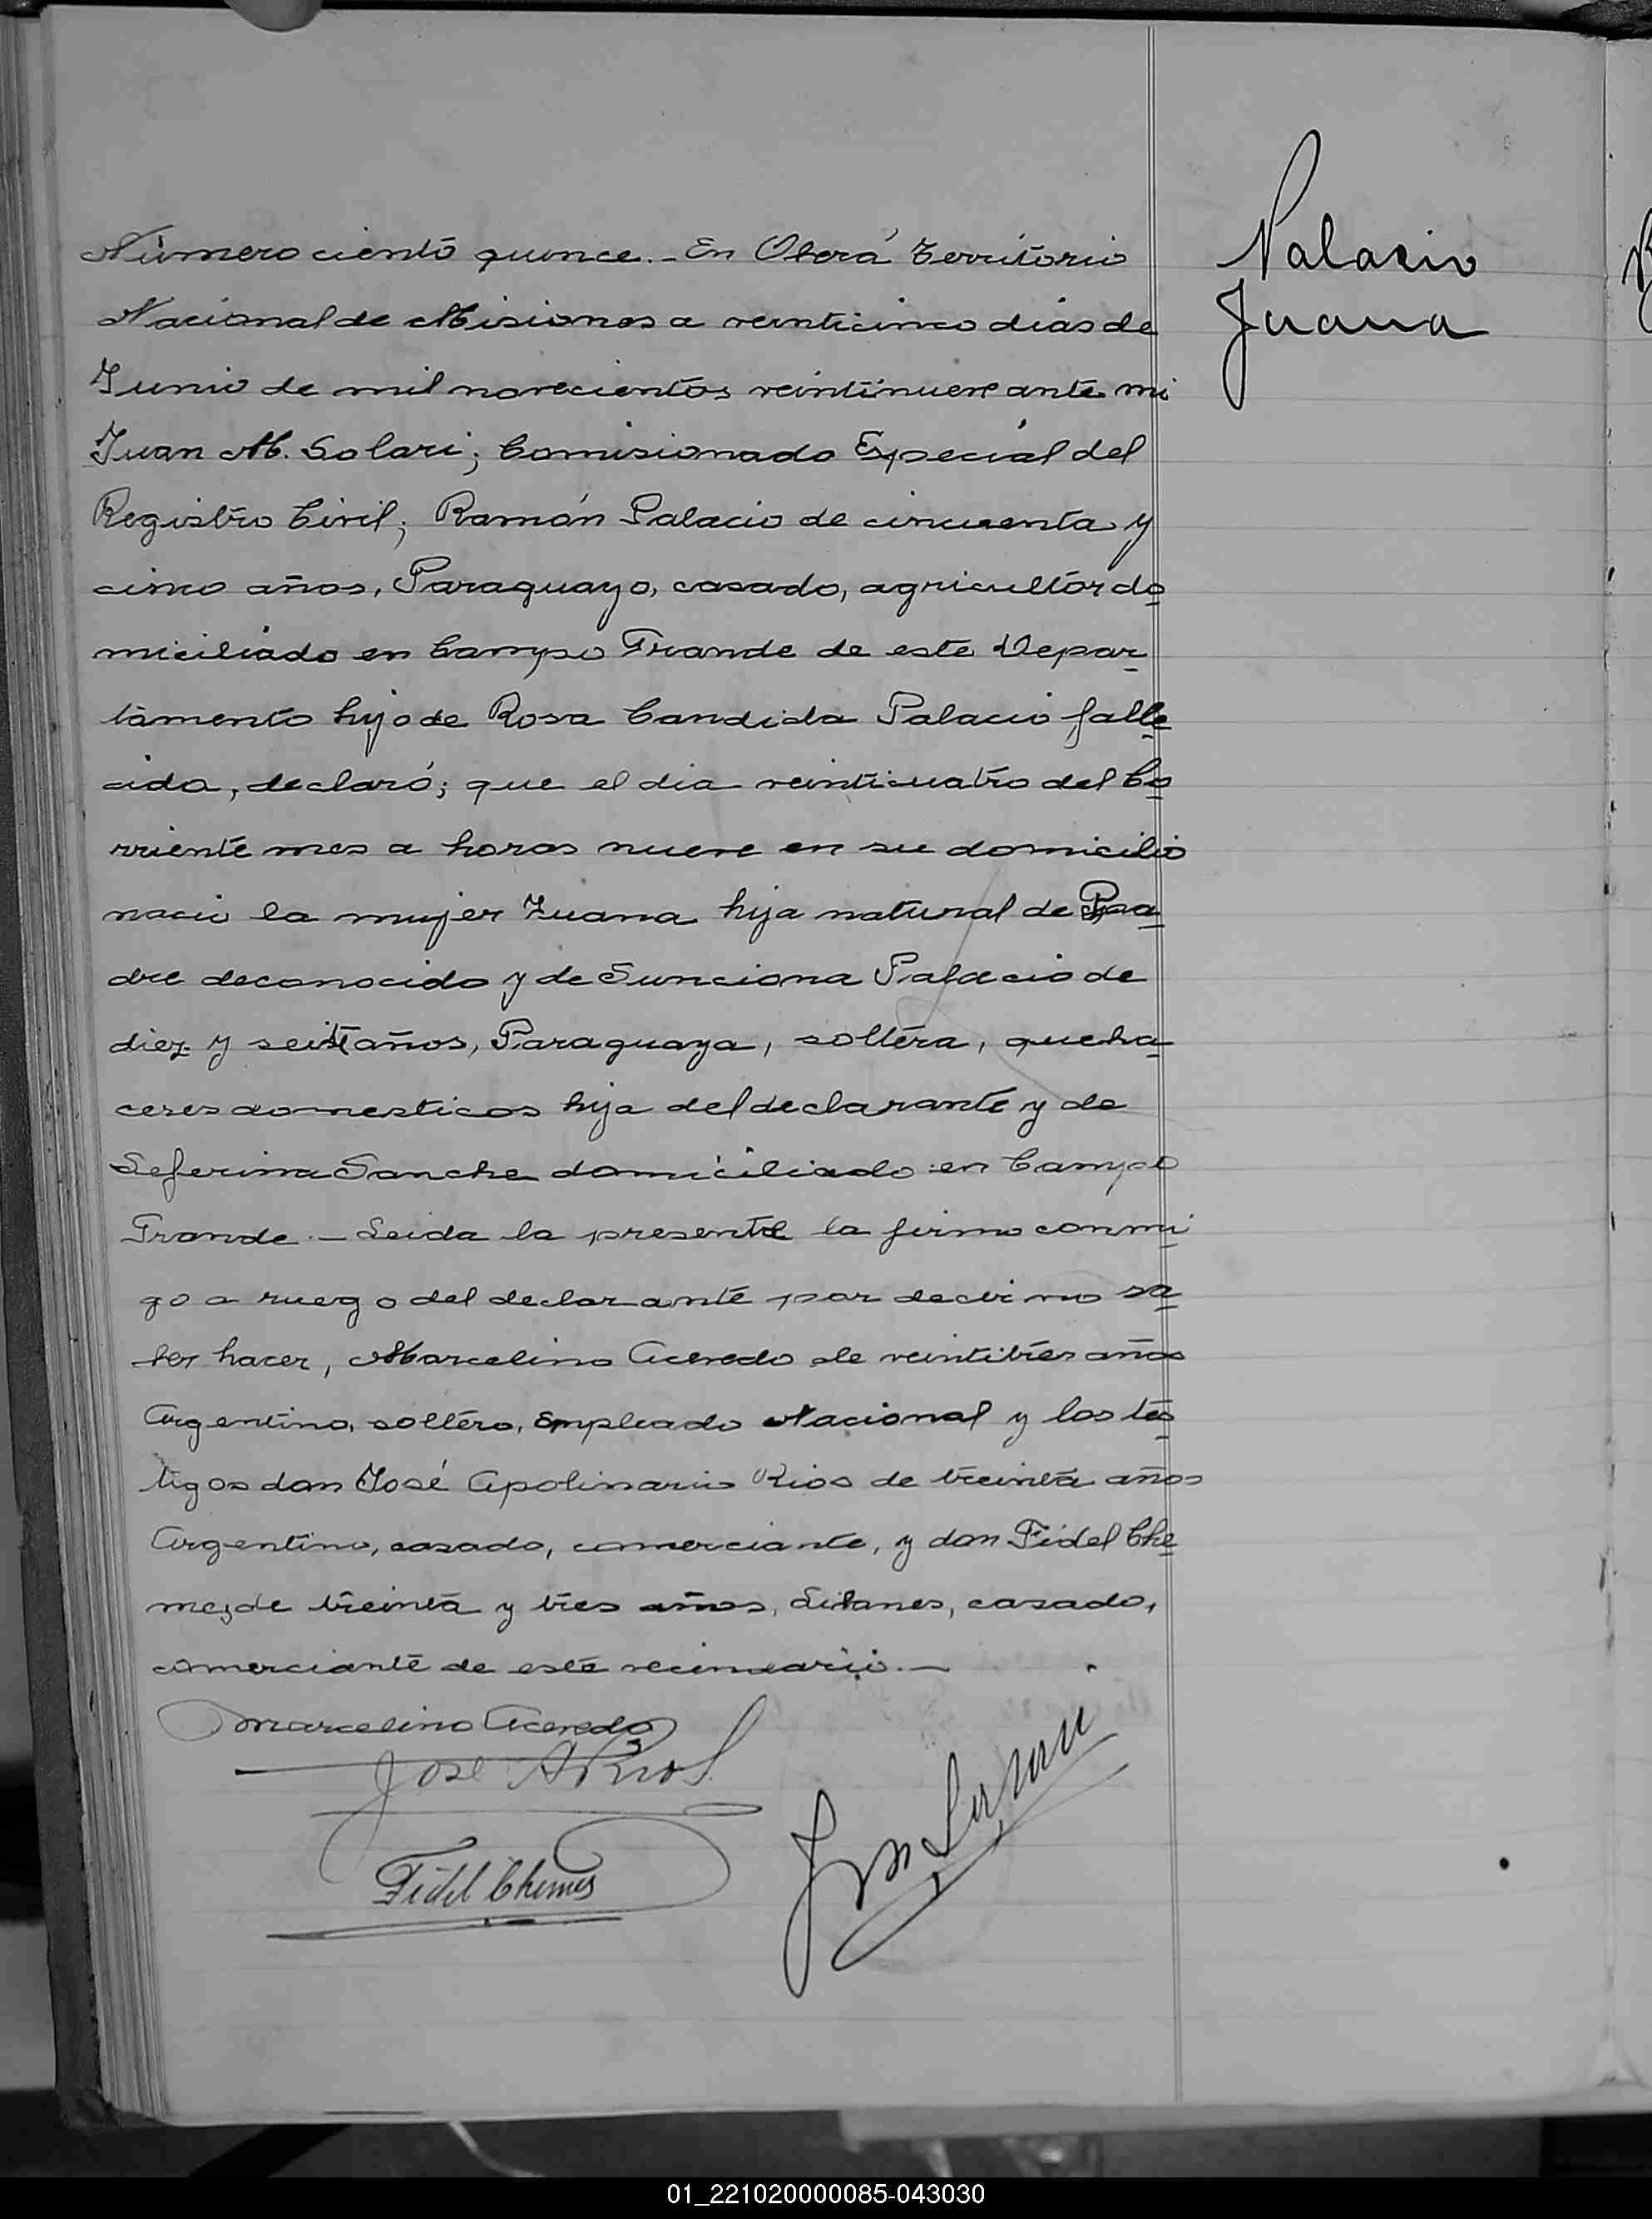 Número ciento quince.- En Oberá Territorio
Nacional de Misiones a veinticinco dias de
Junio de mil novecientos veintinueve ante mi
Juan M. Solari; Comisionado Especial del
Registro Civil; Ramón Palacio de cincuenta y
cinco años, Paraguayo, casado, agricultor do
miciliado en Campo Grande de este Depar
tamento hijo de Rosa Candida Palacio falle
cida, declaró; que el dia veinticuatro del Co
rriente mes a horas nueve en su domicilio
nacio la mujer Juana hija natural de Pa
dre deconocido y de Sunciona Palacio de
diez y siete años, Paraguaya, soltera, queha
ceres domesticos hija del declarante y de
Seferina Sanche domiciliado en Campo
Grande.- Leida la presente la firmo conmi
go a ruego del declarante por decir no sa
ber hacer, Marcelino Acevedo de veintitres años
Argentino, soltero, Empleado Nacional y los tes
tigos don José Apolinario Rios de treinta años
Argentino, casado, comerciante, y don Fidel Che
mes, de treinta y tres años, Libanes, casado,
comerciante de este vecindario.-
Marcelino Acevedo
José A Rios
Fidel Chemes
Palacio
Juana
01_221020000085-043030